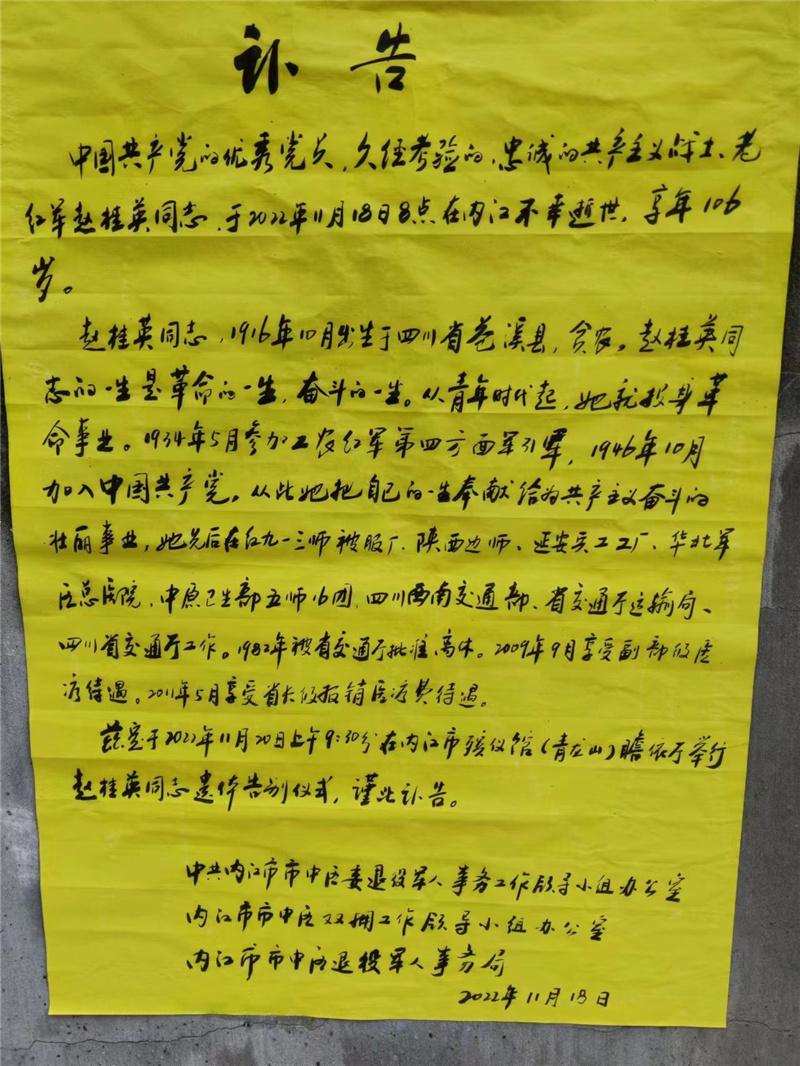 讣告
中国共产党的优秀党员,久经考验的,忠诚的共产主义战士、老
红军赵桂英同志,于2022年11月18日8点在内江不幸逝世,享年106
岁。
赵桂英同志,1916年10月出生于四川省苍溪县,贫农。赵桂英同
志的一生是革命的一生,奋斗的一生。从青年时代起,她就投身革
命事业。1934年5月参加工农红军第四方面军31军,1946年10月
加入中国共产党。从此她把自己的一生奉献给为共产主义奋斗的
壮丽事业,她先后在红九一三师被服厂、陕西边师、延安实工工厂、华北军
区总医院、中原卫生部五师16团、四川西南交通部、省交通厅运输局、
四川省交通厅工作。1982年被省交通厅批准离休。2009年9月享受副部级医
疗待遇。2011年5月享受省长级报销医疗费待遇。
兹定于2022年11月20日上午9:30分在内江市殡仪馆(青龙山)瞻依厅举行
赵桂英同志遗体告别仪式,谨此讣告。
中共内江市市中区委退役军人事务工作领导小组办公室
内江市市中区双拥工作领导小组办公室
内江市市中区退役军人事务局
2022年11月18日